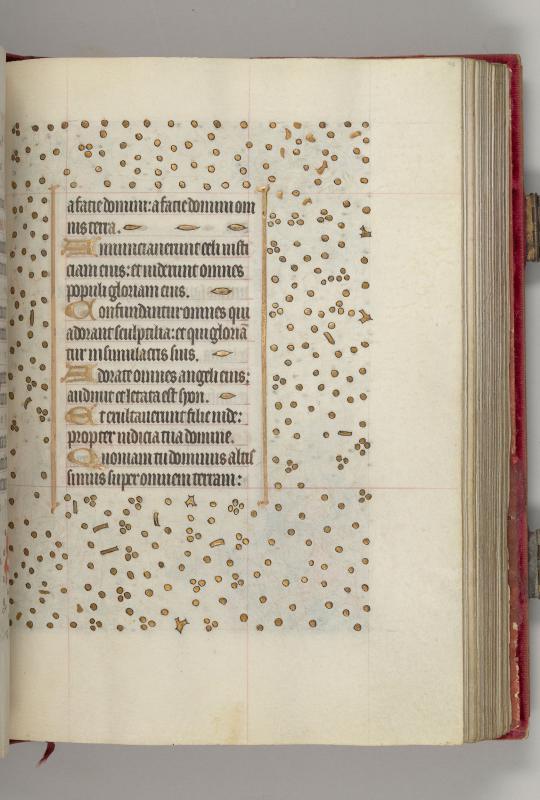 a facie domini: a facie domini om
nis terra.
Annunciauerunt celi iusti
ciam eius: et uiderunt omnes
populi gloriam eius.
Confundantur omnes qui
adorant sculptilia: et qui gloriā
tur in simulacris suis.
Adorate omnes angeli eius:
audiuit et letata est syon.
Et exultauerunt filie iude:
propter iudicia tua domine.
Quoniam tu dominus altis
simus super omnem terram: